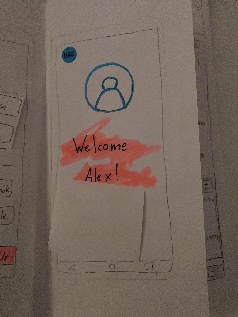 Welcome
Alex!